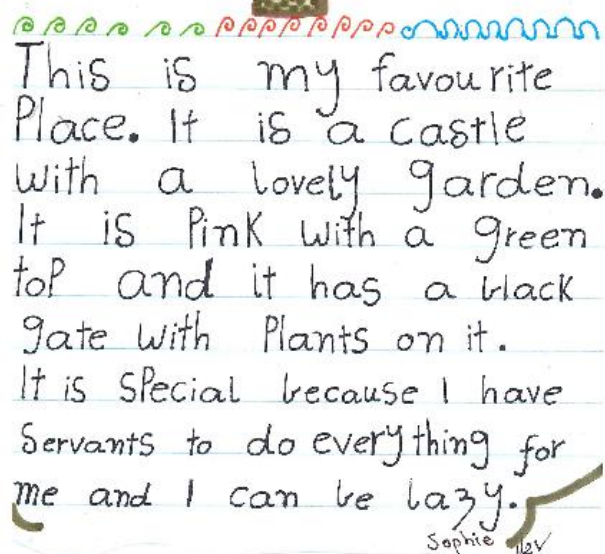 This is my favourite
Place. It is a castle
with a lovely garden.
It is Pink with a green
top and it has a black
gate with Plants on it.
It is special because I have
Servants to do everything for
me and I can be lazy.
Sophie